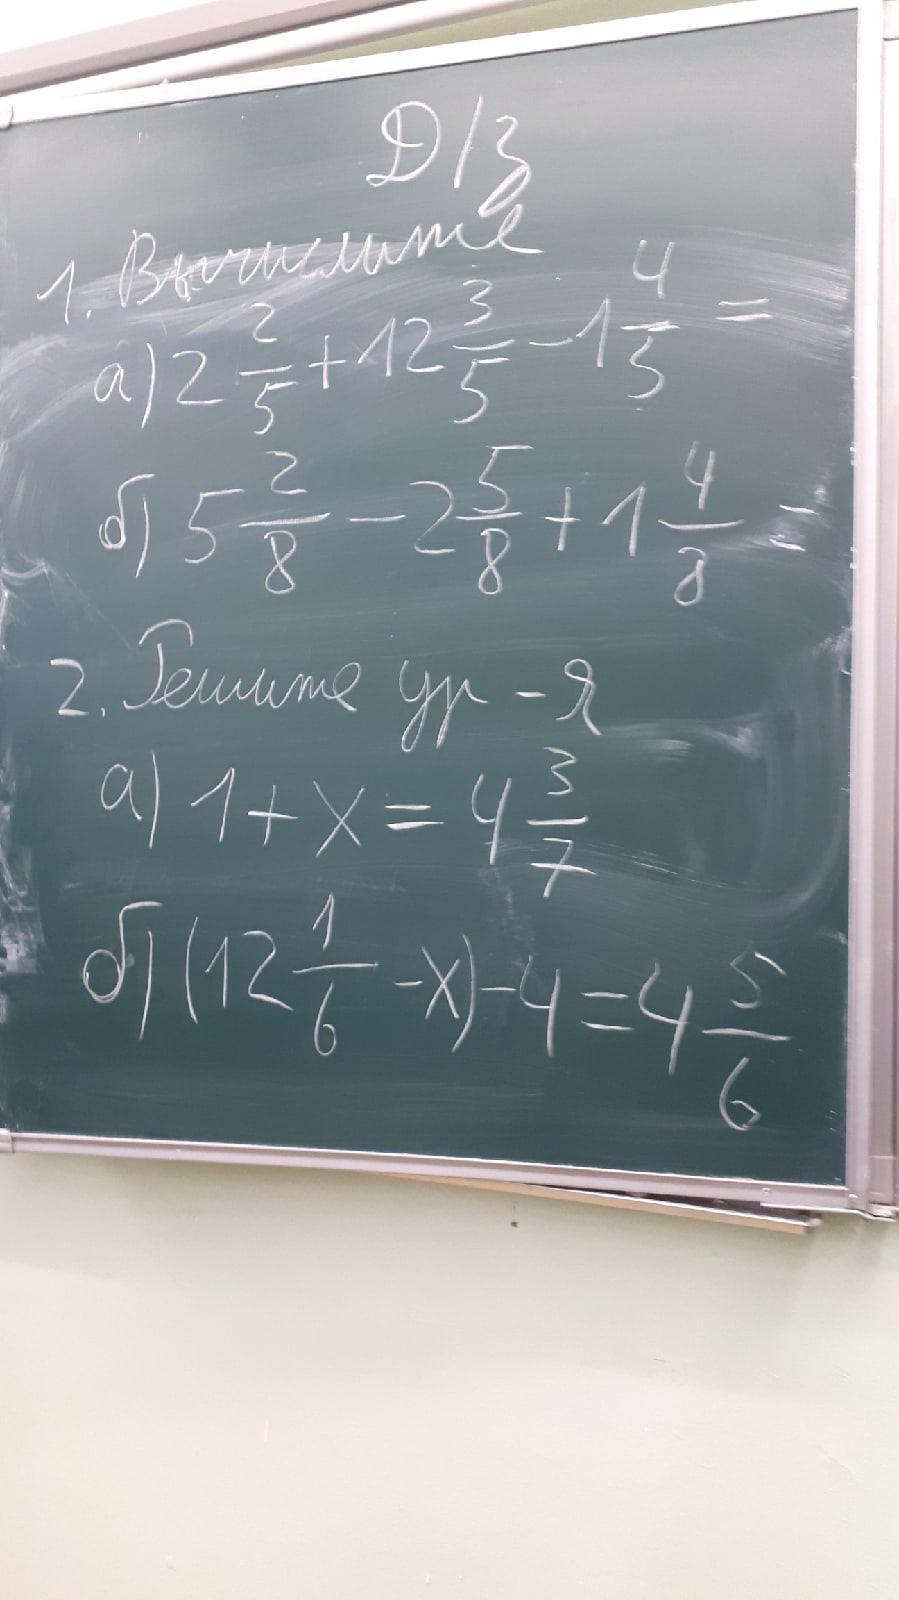 Д/з
1. Вычислите
а) 2 2/5 + 12 3/5 - 1 4/5 =
б) 5 2/8 - 2 5/8 + 1 4/8 =
2. Решите ур-я
а) 1 + x = 4 3/7
б) (12 1/6 - x) - 4 = 4 5/6